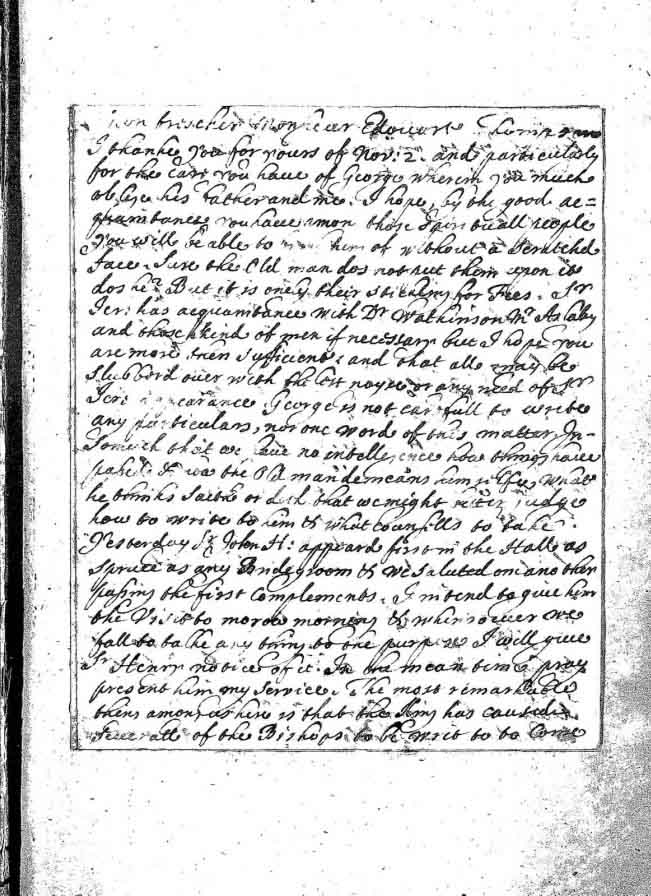 Mon trescher Monsieur Edouart Thomson
I thanke you for yours of Nov: 2. and particularly
for the care you have of George wherein you much
oblige his father and me. I hope, by the good ac=
quaintance you have amon those Spirituall people
you will be able to him of without a Scratched
face. Sure the Old man dos not put them upon it
dos he? But it is onely their itching for Fees. Sr
Jer: has acquaintance with Dr Watkinson Mr Aslaby
and those kind of men if necessary but I hope you
are more then sufficient: and that all may be
slubberd over with the lest noyse or any need of Sr
Jere: appearance. George is not carefull to write
any particulars, nor one word of this matter, In-
somuch that we have no intelligence how things have
passed & wa the Old man demeans him selfe, what
he thinks saith or doth that we might better judge
how to write to him & what counsells to take.
Yesterday Sr John H: appeard first in the Hall as
spruce as any Bridegroom & we saluted one another
passing the first Complements. I intend to give him
the Visit to morow morning & whensoever we
fall to take any thing to the purpose I will give
Sr Henry notice of it. In the mean time pray
present him my service. The most remarkable
thing amongus here is that the King has caused
severall of the Bishops to be writ to to Come